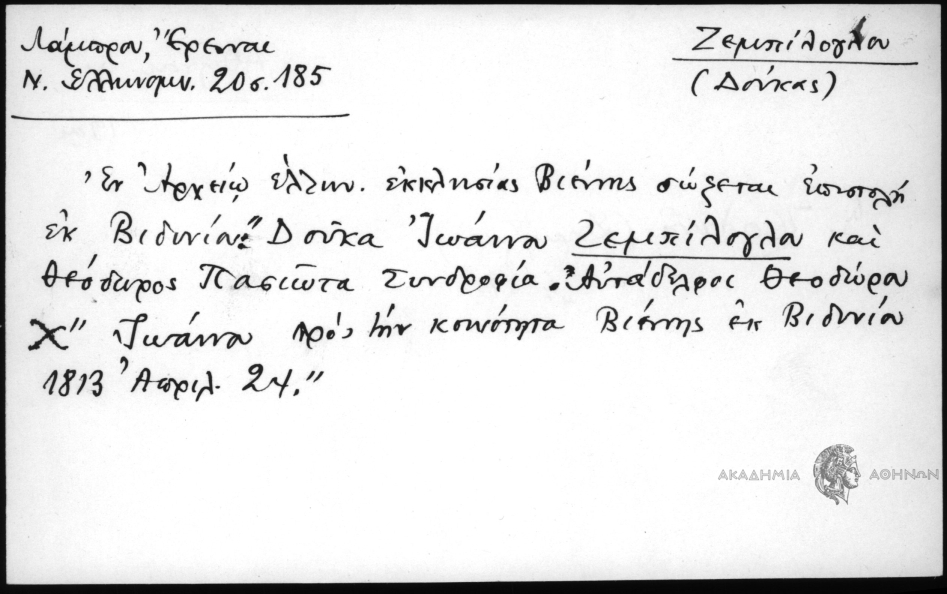 Λάμπρου, Ἔρευναι
Ν. Ἑλληνομν. 20 σ. 185
Ζεμπίλογλου
(Δούκας)
Ἐν Ἀρχείῳ ἑλλην. ἐκκλησίας Βιέννης σώζεται ἐπιστολή
ἐκ Βιδυνίου: "Δούκα Ἰωάννου Ζεμπίλογλου καὶ
Θεόδωρος Πασιώτα Συντροφία. Αὐτάδελφοι Θεοδώρου
Χ" Ἰωάννου πρὸς τὴν κοινότητα Βιέννης ἐκ Βιδυνίου
1813 Ἀπριλ. 24."
ΑΚΑΔΗΜΙΑ ΑΘΗΝΩΝ